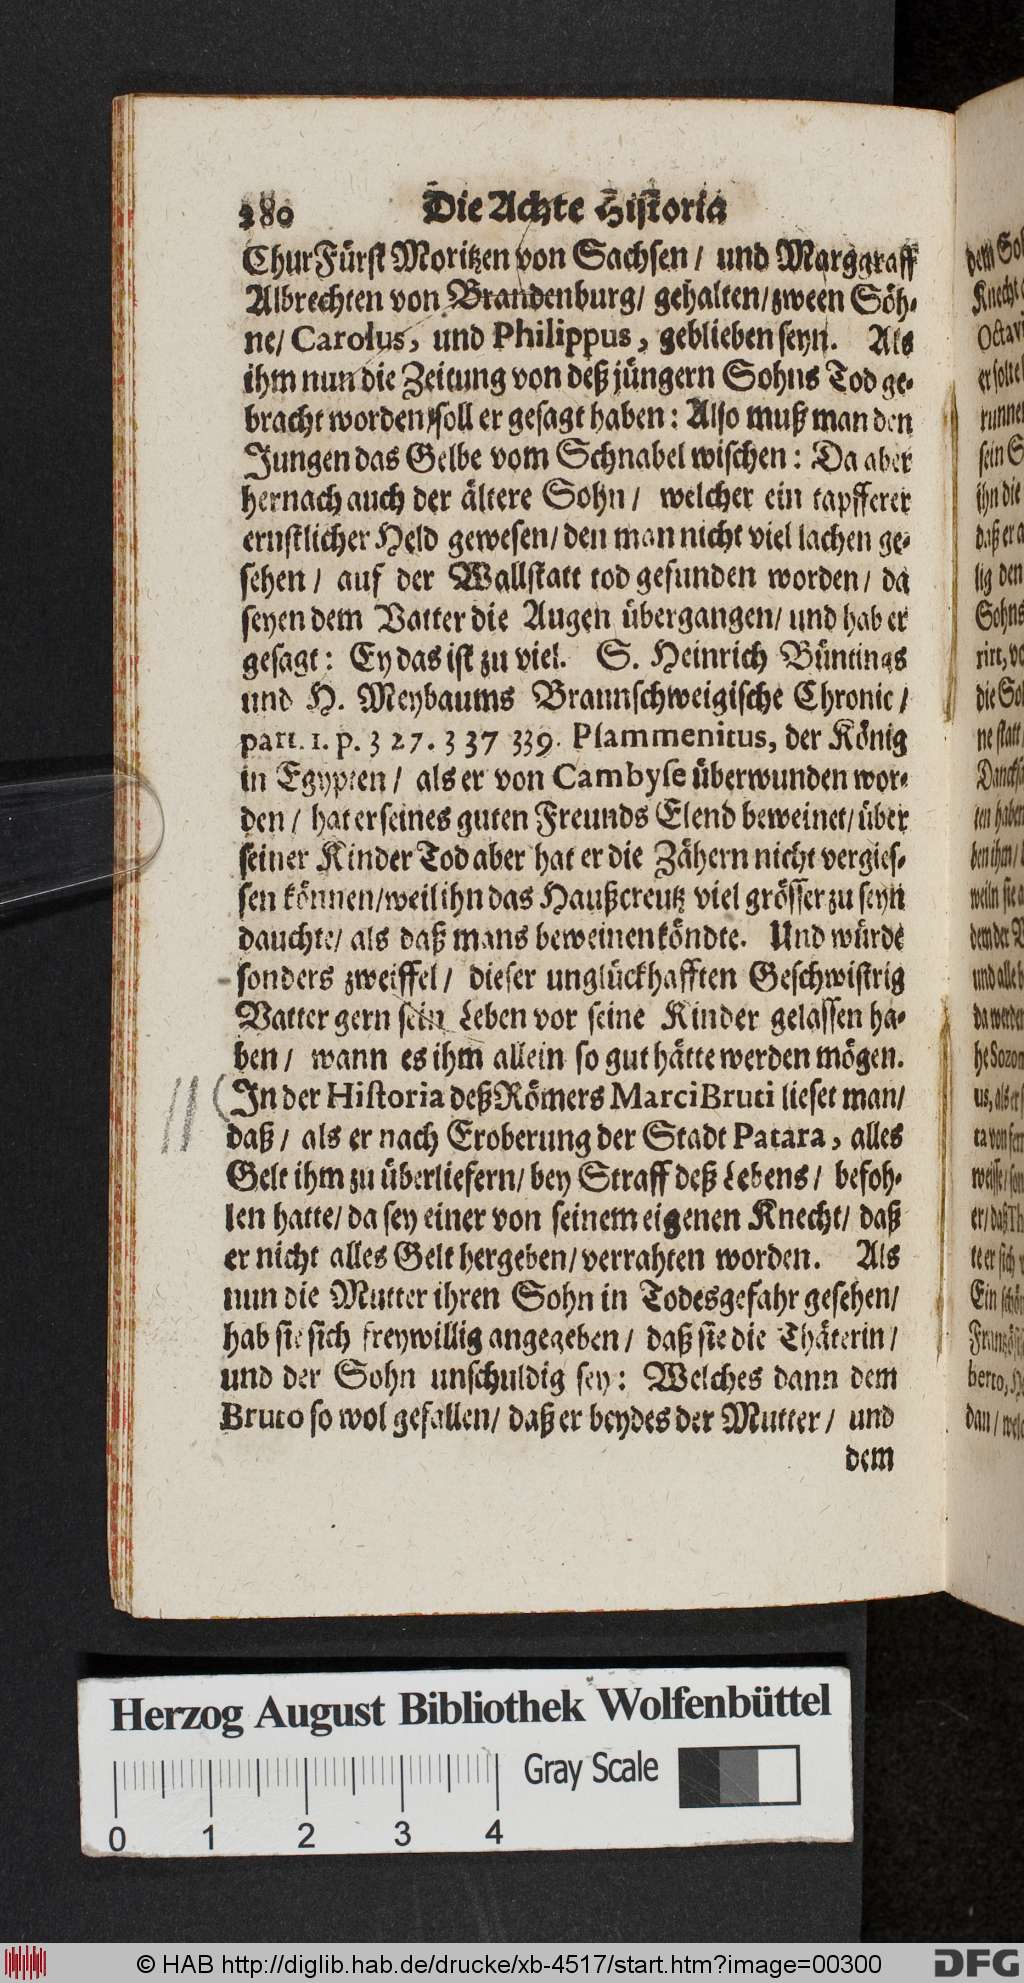 280 Die Achte Historia
ChurFürst Moritzen von Sachsen / und Marggraff
Albrechten von Brandenburg / gehalten / zween Söh-
ne / Carolus, und Philippus, geblieben seyn. Als
ihm nun die Zeitung von deß jüngern Sohns Tod ge-
bracht worden / soll er gesagt haben: Also muß man den
Jungen das Gelbe vom Schnabel wischen: Da aber
hernach auch der ältere Sohn / welcher ein tapfferer
ernstlicher Held gewesen / den man nicht viel lachen ge-
sehen / auf der Wallstatt tod gefunden worden / da
seyen dem Vatter die Augen übergangen / und hab er
gesagt: Ey das ist zu viel. S. Heinrich Büntings
und H. Meybaums Braunschweigische Chronic /
part. 1. p. 327. 337 339. Plammenitus, der König
in Egypten / als er von Cambyse überwunden wor-
den / hat er seines guten Freunds Elend beweinet / über
seiner Kinder Tod aber hat er die Zähern nicht vergies-
sen können / weil ihn das Haußcreutz viel grösser zu seyn
dauchte / als daß mans beweinen köndte. Und würde
sonders zweiffel / dieser unglückhafften Geschwistrig
Vatter gern sein Leben vor seine Kinder gelassen ha-
ben / wann es ihm allein so gut hätte werden mögen.
In der Historia deß Römers Marci Bruti lieset man /
daß / als er nach Eroberung der Stadt Patara, alles
Gelt ihm zu überliefern / bey Straff deß Lebens / befoh-
len hatte / da sey einer von seinem eigenen Knecht / daß
er nicht alles Gelt hergeben / verrahten worden. Als
nun die Mutter ihren Sohn in Todesgefahr gesehen /
hab sie sich freywillig angegeben / daß sie die Thäterin /
und der Sohn unschuldig sey: Welches dann dem
Bruto so wol gefallen / daß er beydes der Mutter / und
dem
Herzog August Bibliothek Wolfenbüttel
Gray Scale
0 1 2 3 4
© HAB http://diglib.hab.de/drucke/xb-4517/start.htm?image=00300
DFG